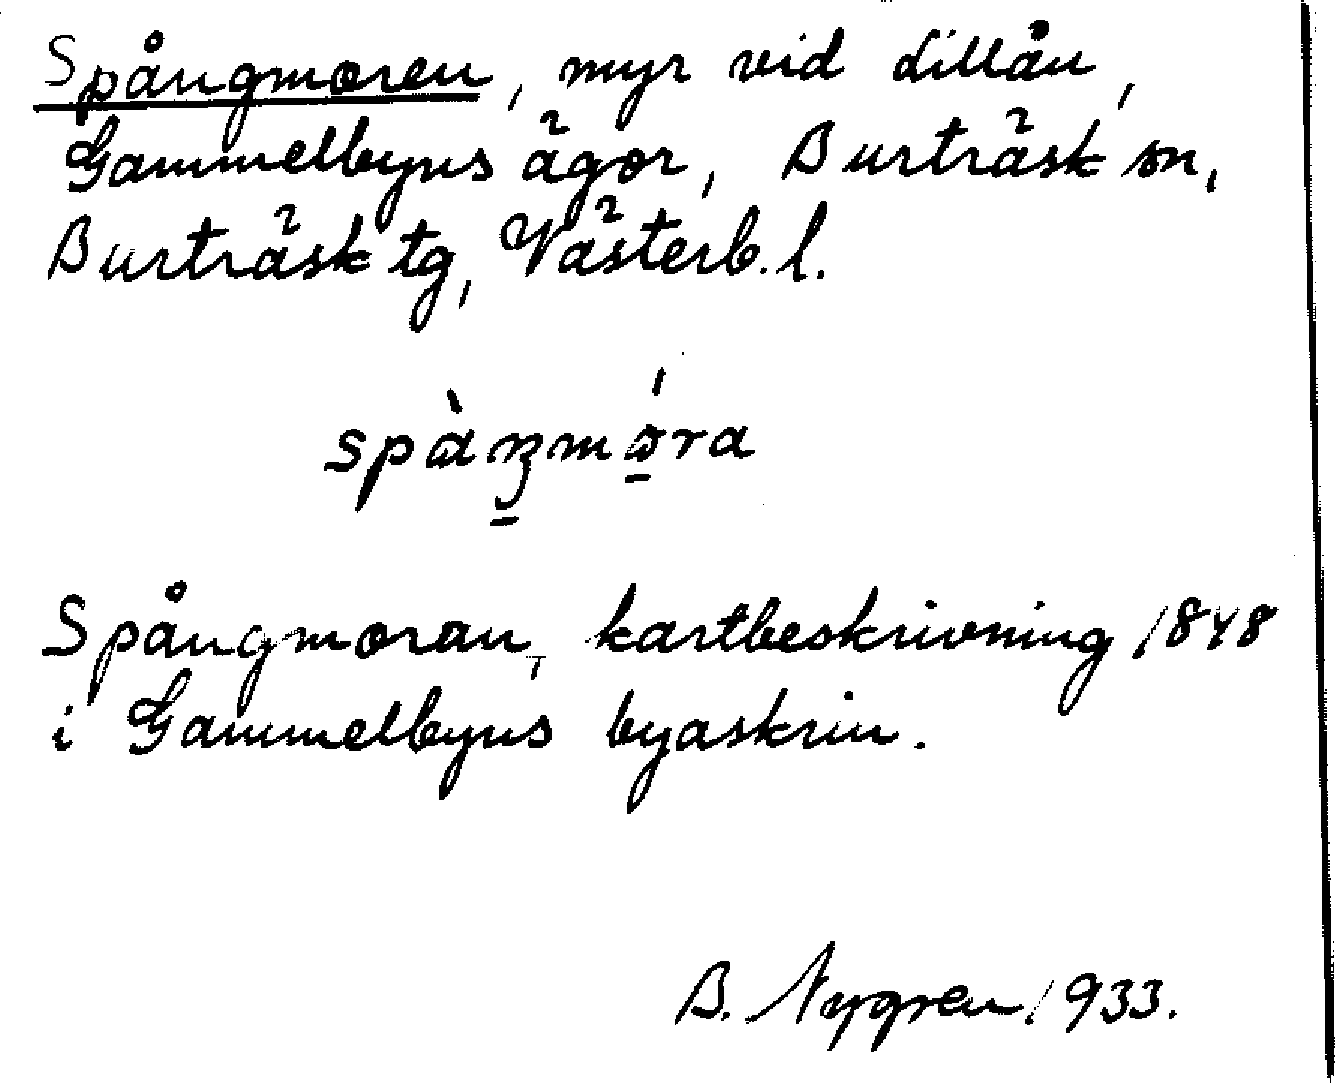 Spångmoren, myr vid Lillån,
Gammelbyns ägor, Burträsk sn,
Burträsk tg, Västerb. l.
spàŋmóra
Spångmoran, kartbeskrivning 1848
i Gammelbyns byaskrin.
B. Nygren 1933.